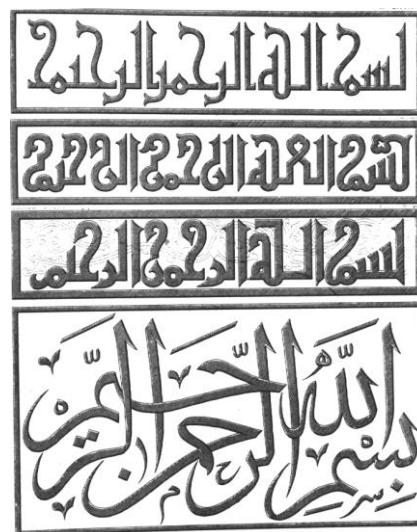 بسم الله الرحمن الرحيم
بسم الله الرحمن الرحيم
بسم الله الرحمن الرحيم
بِسْمِ اللّٰهِ الرَّحْمٰنِ الرَّحِيْمِ